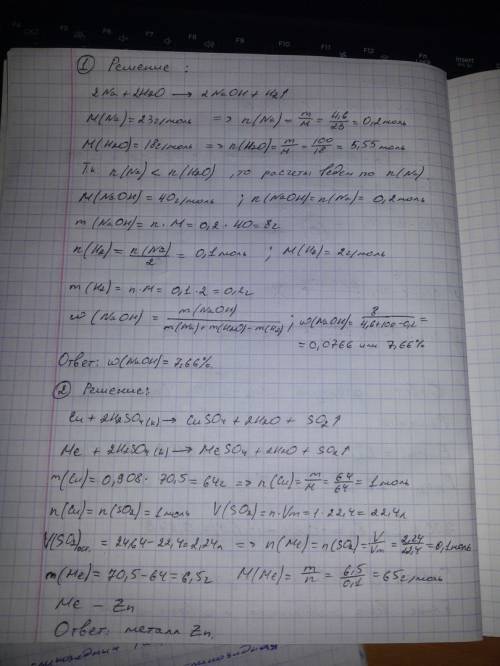 ① Решение:
2Na + 2H2O → 2NaOH + H2↑
M(Na) = 23г/моль => n(Na) = m/M = 4,6/23 = 0,2 моль
M(H2O) = 18г/моль => n(H2O) = m/M = 100/18 = 5,55 моль
Т.к n(Na) < n(H2O), то расчеты ведем по n(Na)
M(NaOH) = 40г/моль ; n(NaOH) = n(Na) = 0,2 моль
m(NaOH) = n·M = 0,2·40 = 8г
n(H2) = n(Na)/2 = 0,1 моль ; M(H2) = 2г/моль
m(H2) = n·M = 0,1·2 = 0,2г
ω(NaOH) = m(NaOH)/m(Na)+m(H2O)-m(H2) ; ω(NaOH) = 8/4,6+100-0,2 =
= 0,0766 или 7,66%
Ответ: ω(NaOH) = 7,66%.
② Решение:
Cu + 2H2SO4(к) → CuSO4 + 2H2O + SO2↑
Me + 2H2SO4(к) → MeSO4 + 2H2O + SO2↑
m(Cu) = 0,908·70,5 = 64г => n(Cu) = m/M = 64/64 = 1 моль
n(Cu) = n(SO2) = 1 моль V(SO2) = n·Vm = 1·22,4 = 22,4л
V(SO2)ост. = 24,64 - 22,4 = 2,24л => n(Me) = n(SO2) = V/Vm = 2,24/22,4 = 0,1 моль
m(Me) = 70,5 - 64 = 6,5г M(Me) = m/n = 6,5/0,1 = 65г/моль
Me - Zn
Ответ: металл Zn.